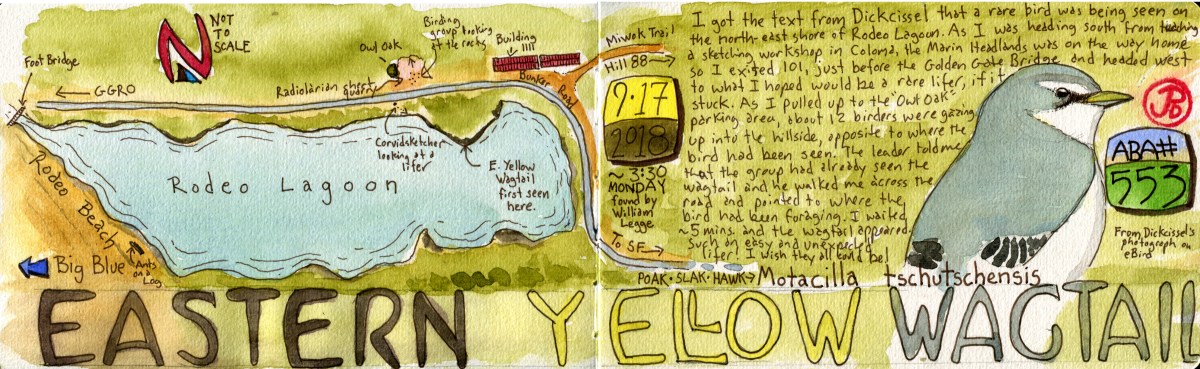 N
NOT
TO
SCALE
Foot Bridge
← GGRO
Owl Oak
Birding
group looking
at the rocks
Building
1111
Radiolarian chert
quarry
Bunker Road
Corvidsketcher
looking at a
lifer
E. Yellow
Wagtail
first seen
here.
Rodeo Lagoon
Rodeo Beach
Ants
on a
Log
Big Blue
Miwok Trail
Hill 88 →
9·17
2018
~ 3:30
MONDAY
found by
William
Legge
To SF →
I got the text from Dickcissel that a rare bird was being seen on
the north-east shore of Rodeo Lagoon. As I was heading south from teaching
a sketching workshop in Coloma, the Marin Headlands was on the way home
so I exited 101, just before the Golden Gate Bridge and headed west
to what I hoped would be a rare lifer, if it
stuck. As I pulled up to the "Owl Oak"
parking area, about 12 birders were gazing
up into the hillside, opposite to where the
bird had been seen. The leader told me
that the group had already seen the
wagtail and he walked me across the
road and pointed to where the
bird had been foraging. I waited
~5 mins. and the wagtail appeared.
Such an easy and unexpected
lifer! I wish they all could be!
ABA#
553
From Dickcissel's
photograph on
eBird
POAK·SLAK·HAWK→ Motacilla tschutschensis
EASTERN YELLOW WAGTAIL